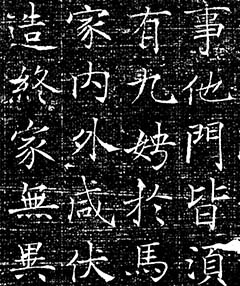 事他門皆須
有九娉於馬
家内外咸伏
造終家無異